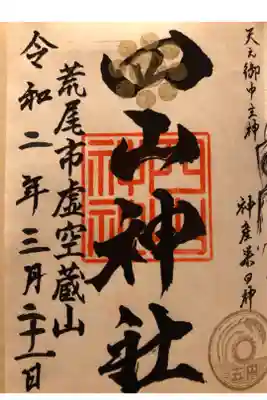 天之御中主神
神産巣日神
四山神社
四山
神社
荒尾市虚空蔵山
令和二年三月二十一日
五円